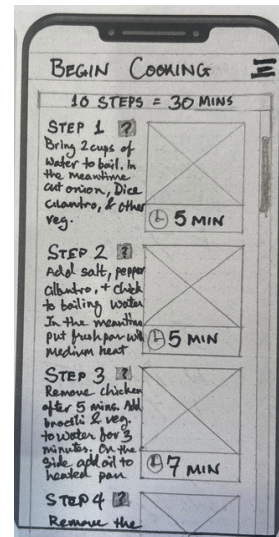 BEGIN COOKING
10 STEPS = 30 MINS
STEP 1 ?
Bring 2 cups of
water to boil. In
the meantime
cut onion, Dice
cilantro, & other
veg.
5 MIN
STEP 2 ?
Add salt, pepper
cilantro, + chick
to boiling water
In the meantime
put fresh pan with
medium heat
5 MIN
STEP 3 ?
Remove chicken
after 5 mins. Add
brocili & veg.
to water for 3
minutes. On the
side add oil to
heated pan
7 MIN
STEP 4 ?
Remove the